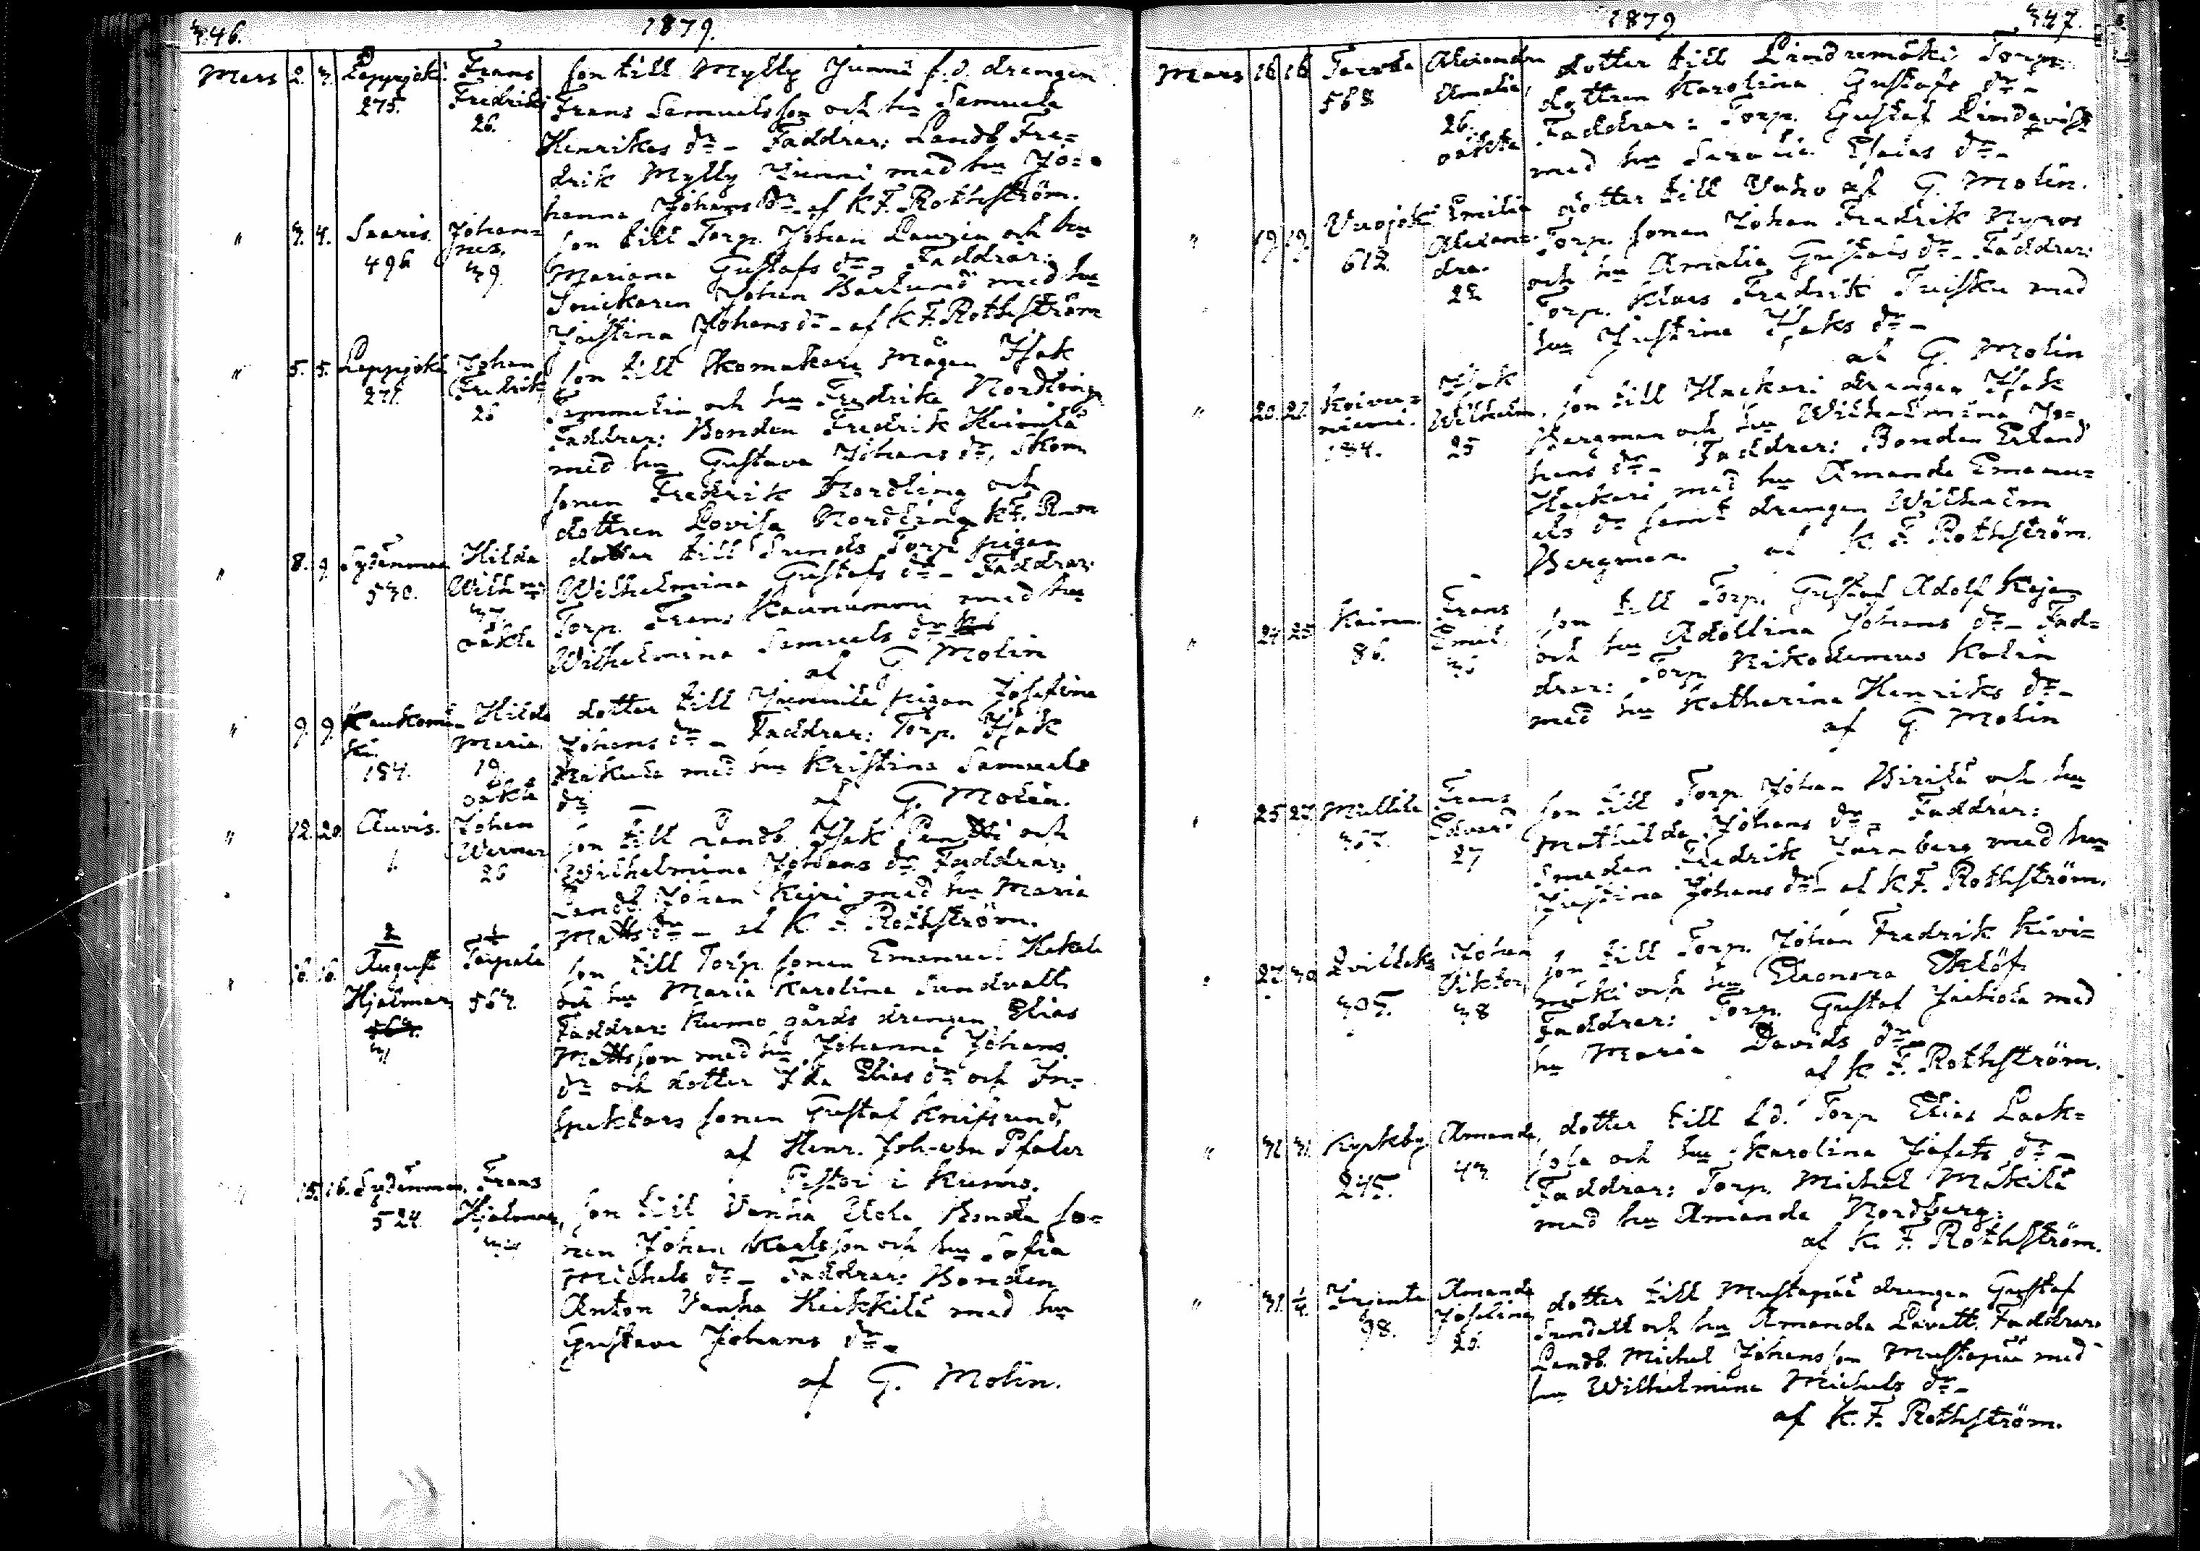 346.
1879.
Mars 2. 3. Leppijoki 275. Frans Fredrik 26.
son till Mylly Junni f.d. drengen
Frans Samuelsson och hu Samuela
Henriks dr – Faddrar: Landb. Fre-
drik Mylly Junni med hu Jo-
hanna Johans dr af K F. Rothström.
" 3. 4. Saaris 496 Johan-
nes, 39
son till Torp. Johan Lauren och hu
Mariana Gustafs dr – Faddrar:
Snickaren Johan Barlund med hu
Justina Johans dr – af K F. Rothström
" 5. 5. Leppijoki 271. Johan Fredrik 26
son till Skomakare Mågen Isak
Tammelin och hu Fredrika Nordling
Faddrar: Bonden Fredrik Heinilä
med hu Gustava Johans dr, Skom.
sonen Fredrik Nordling och
dottren Lovisa Nordling K F. R–m
" 8. 9. Sydänmaa 530. Hilda Wilhma 37. oäkta
dotter till Sunds Torp pigan
Wilhelmina Gustafs dr – Faddrar:
Torp. Frans Kaunummi med hu
Wilhelmina Samuels dr
af G Molin
" 9. 9. Kaukomä-
ki. 184. Hilda Maria 19. oäkta
dotter till Junnila pigan Josefina
Johans dr – Faddrar: Torp. Isak
Nikula med hu Kristina Samuels
dr af G. Molin.
" 12. 20. Auvis. 1. Johan Werner 26
son till Landb. Isak Pentti och
Wilhelmina Johans dr Faddrar:
Landb. Johan Keiri med hu Maria
Matts dr – af K F. Rothström.
" 16. 16. 2 August Hjalmar 31 1 Torpala 567.
son till Torp. sonen Emanuel Kakala
och hu Maria Karolina Sundvall
Faddrar: Kumo gårds drengen Elias
Mattsson med hu Johanna Johans
dr och dotter Ida Elias dr och In-
spektors sonen Gustaf Knifsund,
af Henr. Joh. von Pfaler
Pastor i Kumo.
15. 16. Sydänmaa 524. Frans Hjalmar,
son till Vanha Uola Bonde so-
nen Johan Karlsson och hu Sofia
Michels dr – Faddrar: Bonden
Anton Vanha Heikkilä med hu
Gustava Johans dr –
af G. Molin.
1879
347.
Mars 16 16 568 Alexandra Amalia, 26. oäkta
dotter till Lindremäki Torp.
dottren Karolina Gustafs dr –
Faddrar: Torp. Gustaf Lindqvist
med hu Serafia Esaias dr –
af G. Molin.
" 19. 19. Vuojoki 612. Emilia Alexan-
dra. 22
dotter till Vaho
Torp. sonen Johan Fredrik Nyroos
och hu Amalia Gustafs dr – Faddrar:
Torp. Klas Fredrik Tuisku med
hu Justina Isaks dr –
af G. Molin
" 20. 21. Koivu-
niemi. 184. Isak Wilhelm, 25
son till Hackari drengen Isak
Bergman och hu Wilhelmina Jo-
hans dr – Faddrar: Bonden Erland
Hackari med hu Amanda Emanu-
els dr samt drengen Wilhelm
Bergman af K. F Rothström.
" 24 25 86. Frans Emil,
son till Torp. Gustaf Adolf Kojo
och hu Adolfina Johans dr – Fad-
drar: Torp Nikodemus Kolin
med hu Katharina Henriks dr –
af G Molin
25 27 Mullila 367. Frans Edvard 27
son till Torp. Johan Birilä och hu
Mathilda Johans dr – Faddrar:
Smeden Fredrik Järnberg med hu
Justina Johans dr – af K F. Rothström.
27. 30 305. Johan Viktor 38
son till Torp. Johan Fredrik Kivi-
mäki och hu Eleonora Eklöf.
Faddrar: Torp. Gustaf Jachola med
hu Maria Davids dr –
af K F. Rothström.
" 31 31. Kyrkby 245. Amanda, 43.
dotter till f.d. Torp Elias Lack-
sola och hu Karolina Jafets dr –
Faddrar: Torp. Michel Mäkilä
med hu Amanda Nordberg:
af K. F Rothström.
" 31. 1/4. 98. Amanda Josefina 26.
dotter till Mustapää drengen Gustaf
Sundell och hu Amanda Lavatt. Faddrar:
Landb. Michel Johansson Mustapää med
hu Wilhelmina Michels dr –
af K. F. Rothström.